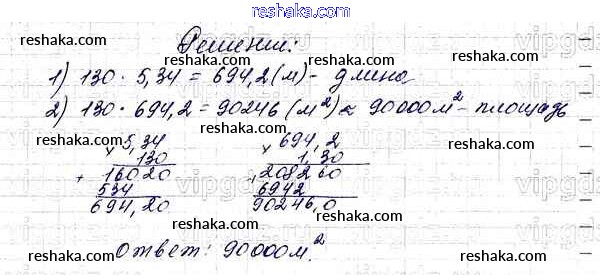 www.reshaka.com
Решение:
reshaka.com reshaka.com reshaka.com
1) 130 · 5,34 = 694,2 (м) - длина
2) 130 · 694,2 = 90246 (м²) ≈ 90000 м² - площадь
reshaka.com reshaka.com
× 5,34 × 694,2
130 1,30
+ 16020 + 208260
534 6942
694,20 90246,0
reshaka.com reshaka.com reshaka.com
Ответ: 90000 м².
reshaka.com